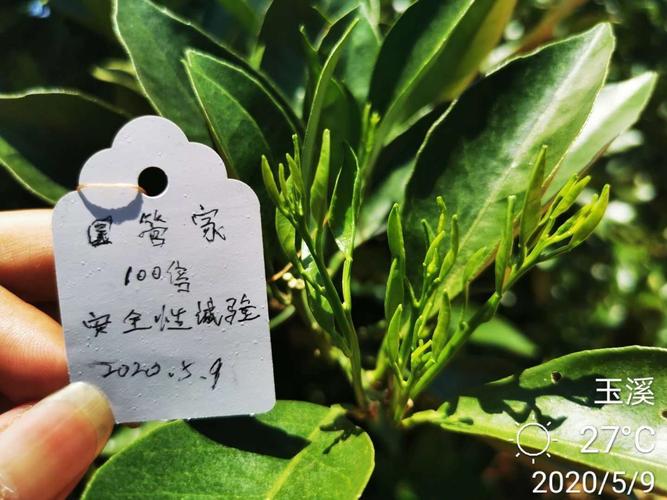 国管家
100倍
安全性试验
2020.5.9
玉溪
27°C
2020/5/9